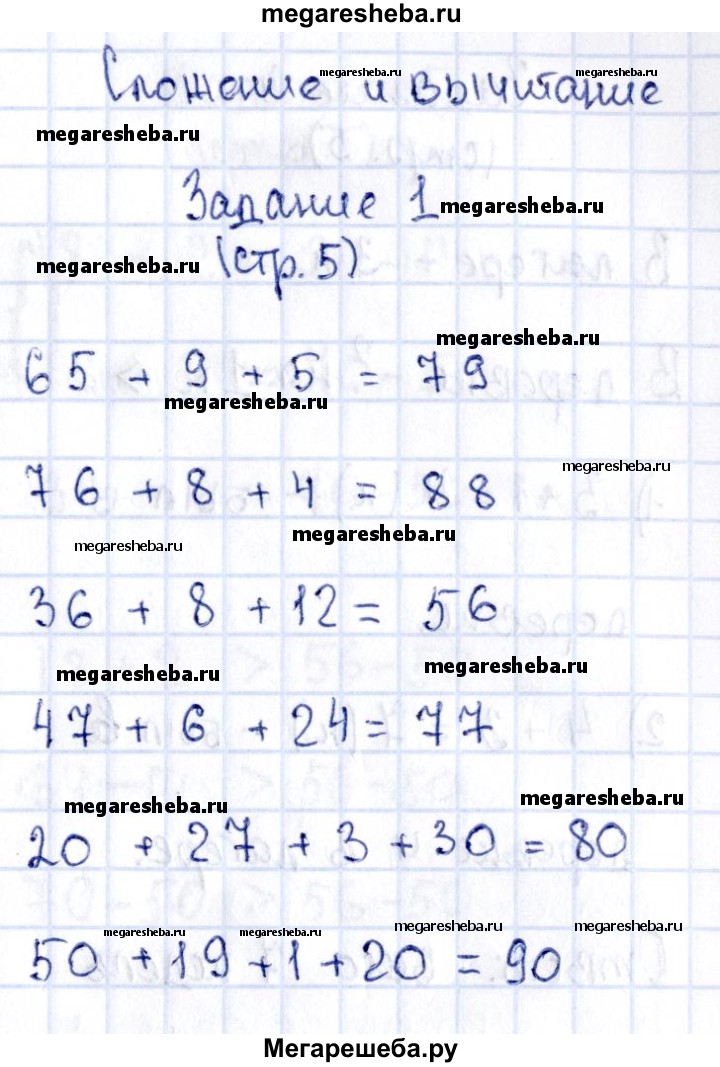 megaresheba.ru
megaresheba.ru
Сложение и вычитание
megaresheba.ru
Задание 1
megaresheba.ru
megaresheba.ru
(стр. 5)
megaresheba.ru
65 + 9 + 5 = 79
megaresheba.ru
megaresheba.ru
76 + 8 + 4 = 88
megaresheba.ru
megaresheba.ru
36 + 8 + 12 = 56
megaresheba.ru
megaresheba.ru
47 + 6 + 24 = 77
megaresheba.ru
megaresheba.ru
20 + 27 + 3 + 30 = 80
megaresheba.ru megaresheba.ru megaresheba.ru megaresheba.ru
50 + 19 + 1 + 20 = 90
Мегарешеба.ру